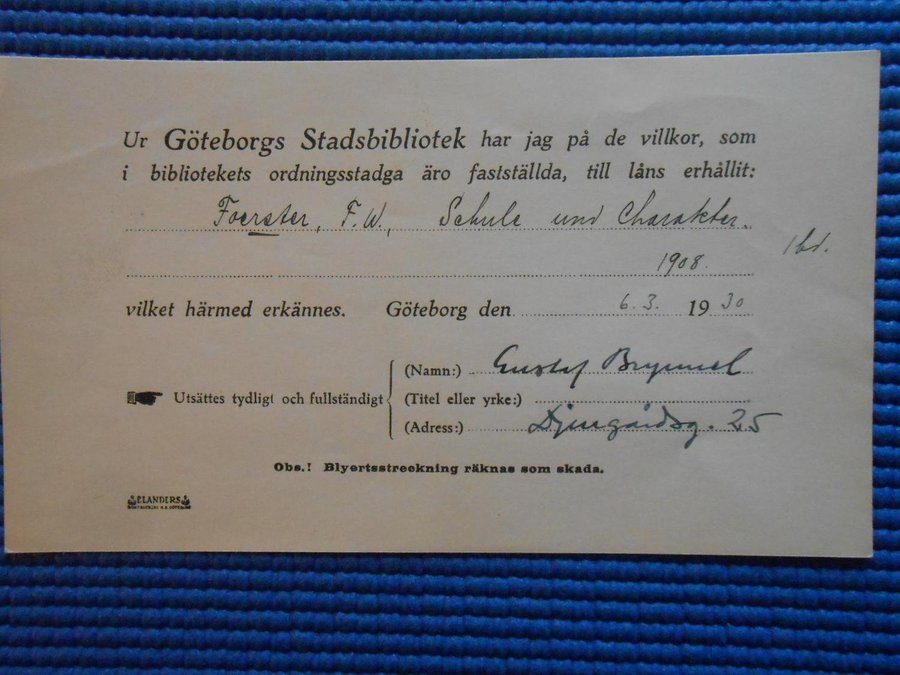 Ur Göteborgs Stadsbibliotek har jag på de villkor, som
i bibliotekets ordningsstadga äro fastställda, till låns erhållit:
Foerster, F. W., Schule und Charakter.
1 bd.
1908.
vilket härmed erkännes. Göteborg den 6.3. 1930
(Namn:) Gustaf
Utsättes tydligt och fullständigt (Titel eller yrke:)
(Adress:) Djurgårdsg. 25
Obs.! Blyertsstreckning räknas som skada.
ELANDERS